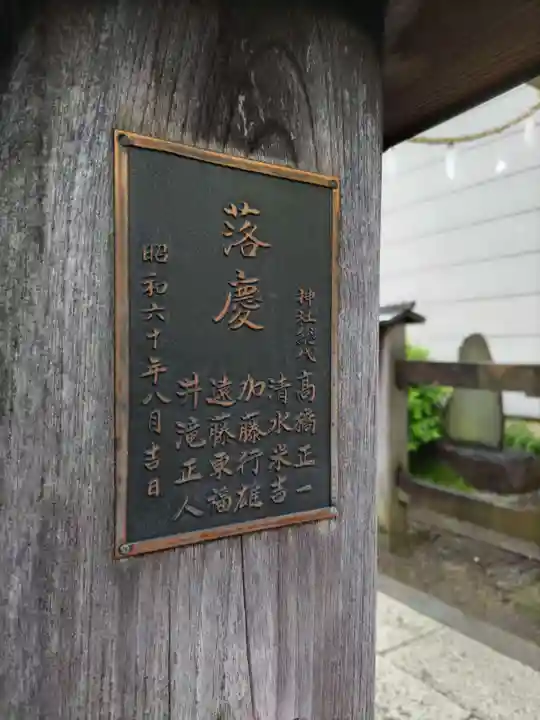 落慶
神社総代 高橋正一
清水米吉
加藤行雄
遠藤東福
井滝正人
昭和六十年八月吉日